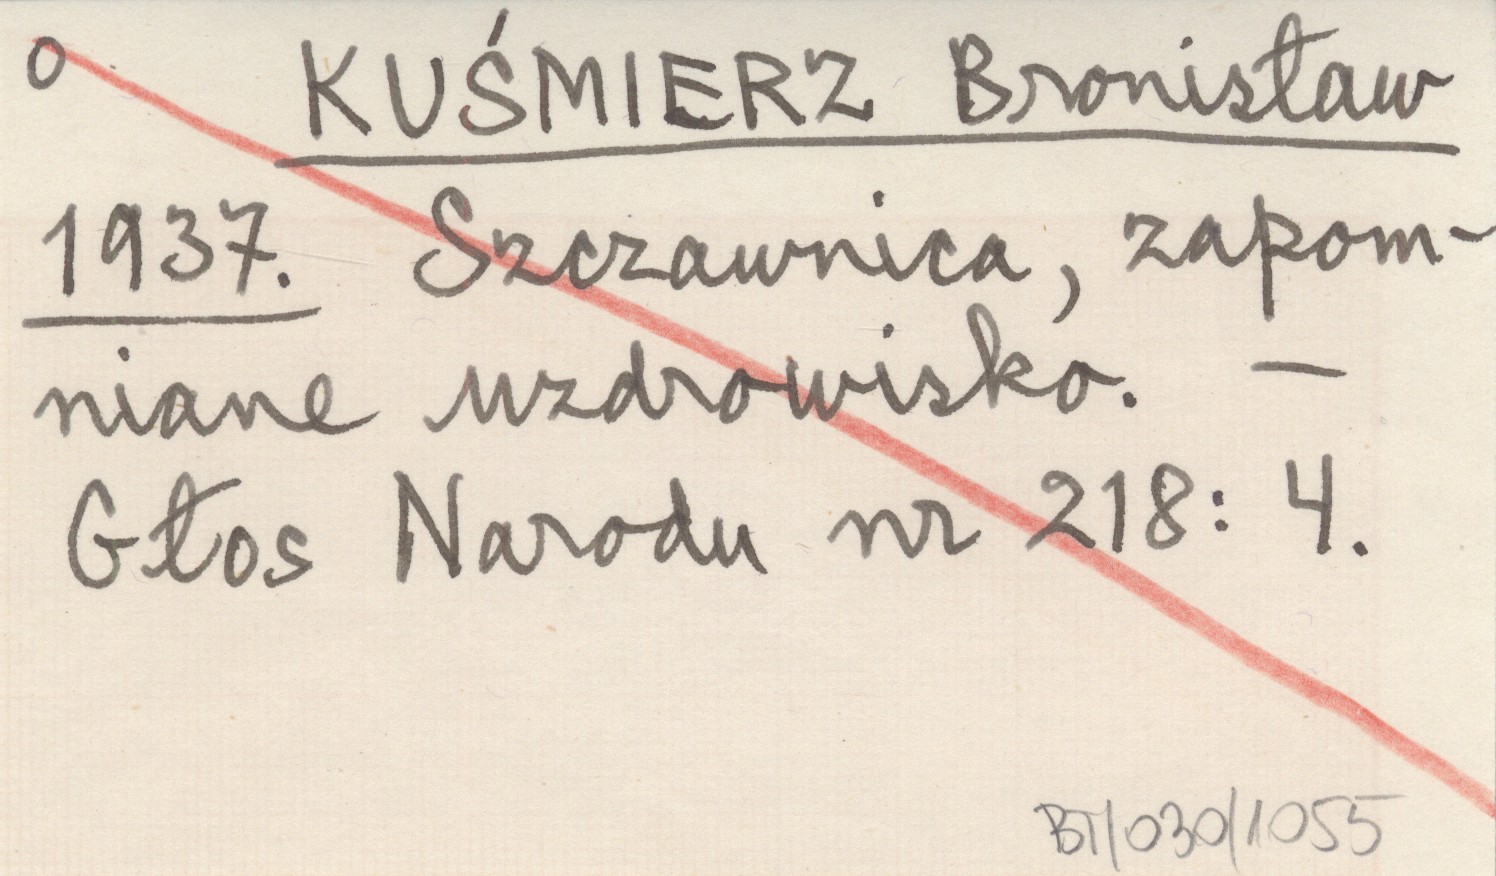 o KUŚMIERZ Bronisław
1937. Szczawnica, zapom-
niane uzdrowisko. —
Głos Narodu nr 218: 4.
BT/030/1055